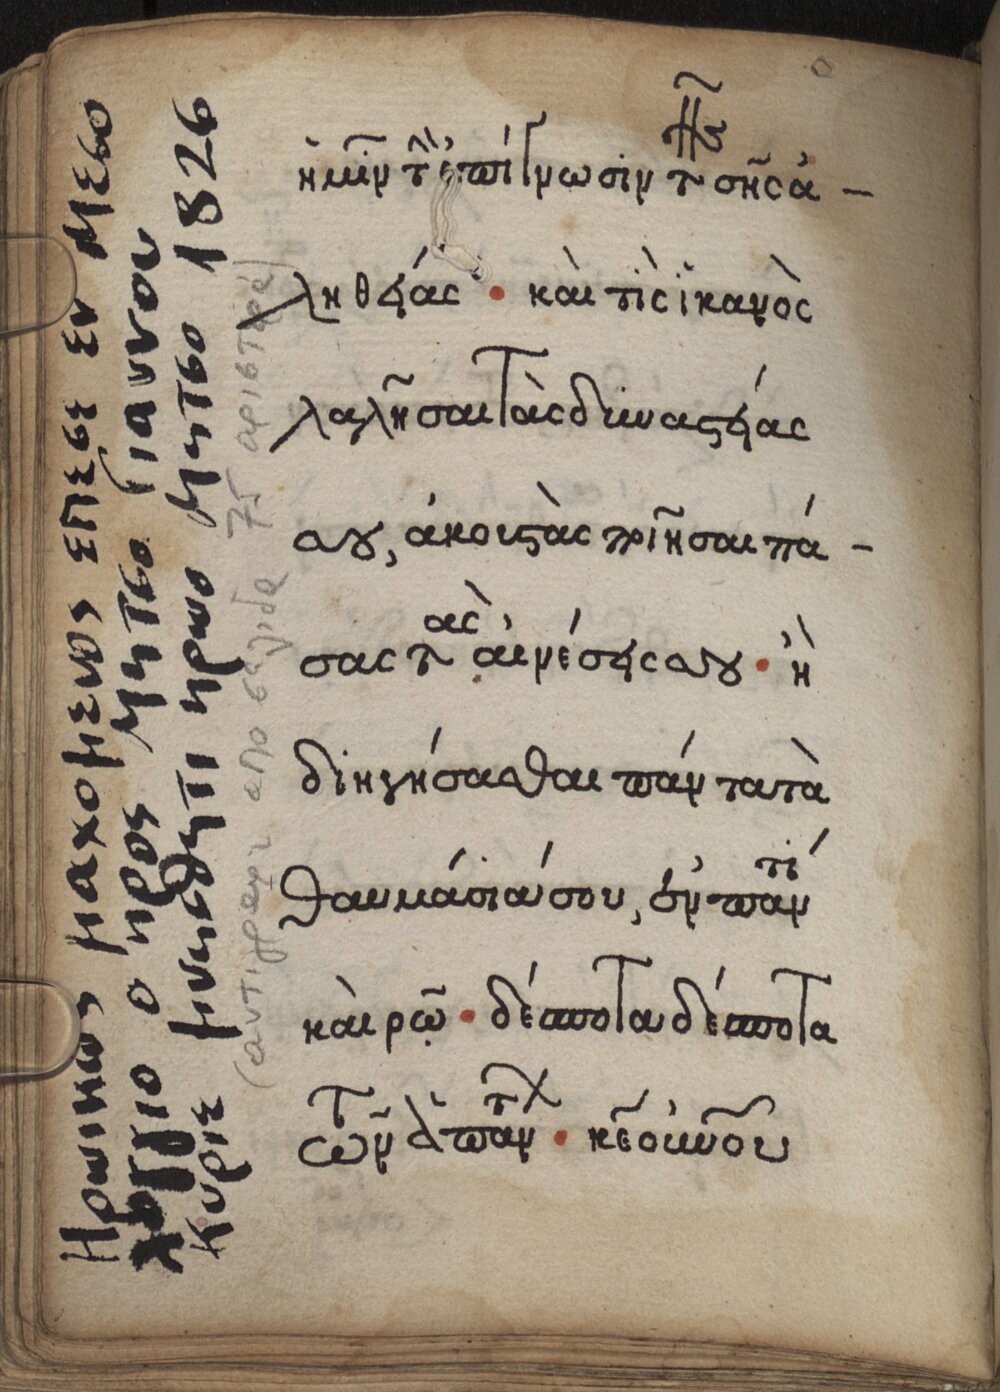 ἡμῖν τ̂ ἐπίγνωσιν τ̂ σῆς ἀ-
ληθείας · καὶ τίς ἱκανὸς
λαλῆσαι τὰς δυναστείας
σου, ἀκουστὰς ποιῆσαι πά-
σας τὰς αἰνέσεις σου · ἢ
διηγήσασθαι πάντα τὰ
θαυμάσιά σου, ἐν παντὶ
καιρῷ · δέσποτα δέσποτα
τῶν ἁπάντ · κε οὐνου
Ηρωικως μαχομενος επεσε εν Μεσο
λογγιο ο ηρος Μητσο Γιαννου
Κυριε μνησθητι ηρωο Μητσο 1826
(αντιγραφη απο σελιδα 75 αριστερα)